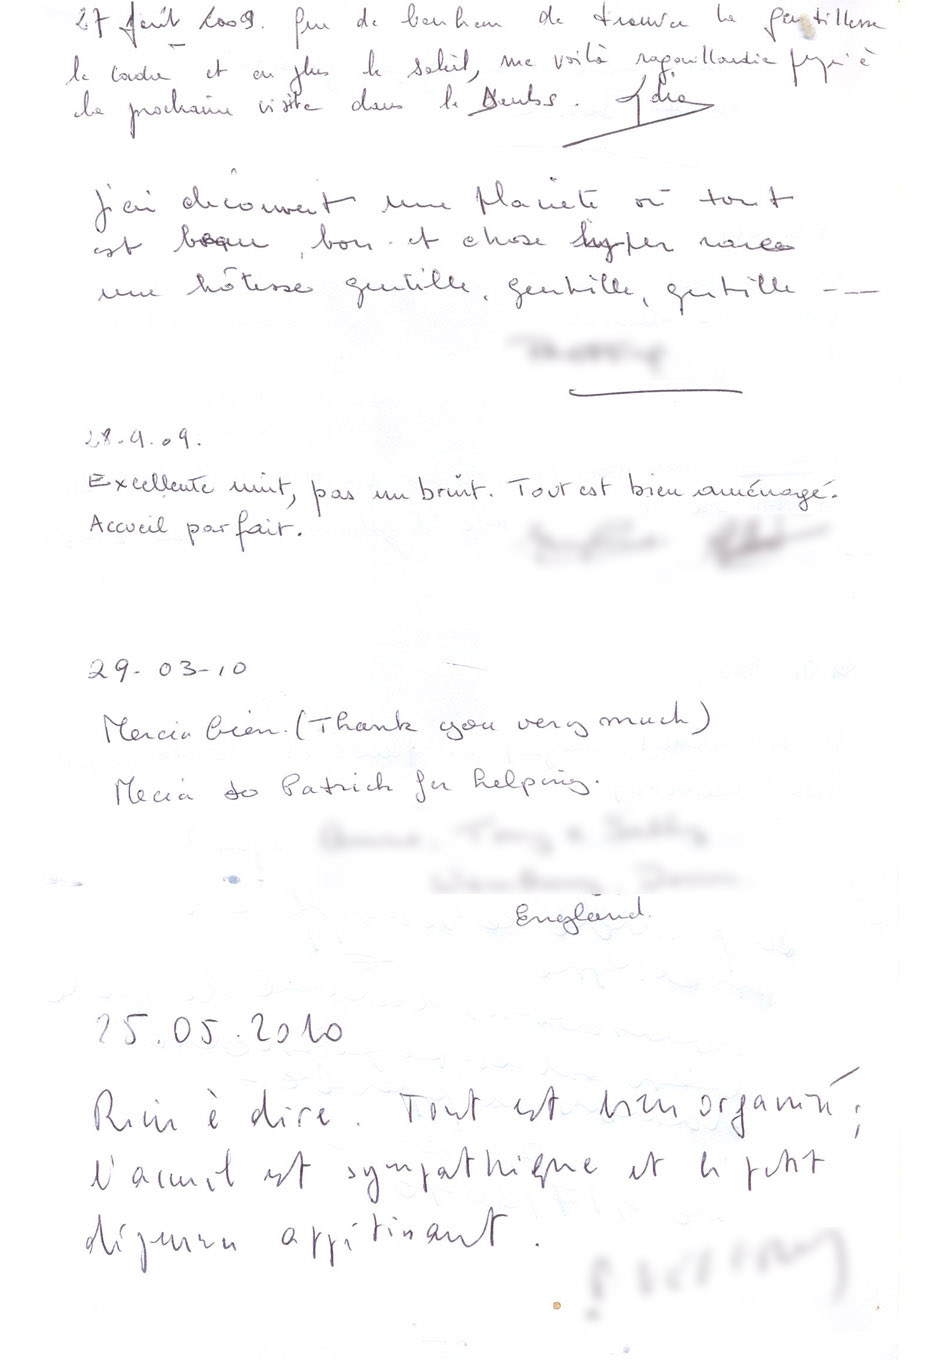 27 Août 2009. que de bonheur de trouver la gentillesse
le cadre et en plus le soleil, me voilà ragaillardie jusqu'à
la prochaine visite dans le Doubs. Lydia
J'ai découvert une planète où tout
est beau, bon et chose hyper rare
une hôtesse gentille, gentille, gentille ---
28.9.09.
Excellente nuit, pas un bruit. Tout est bien aménagé.
Accueil parfait.
29-03-10
Mercia bien. (Thank you very much)
Mecia to Patrick for helping.
England.
25.05.2010
Rien à dire. Tout est bien organisé;
l'accueil est sympathique et le petit
déjeuner appétissant.